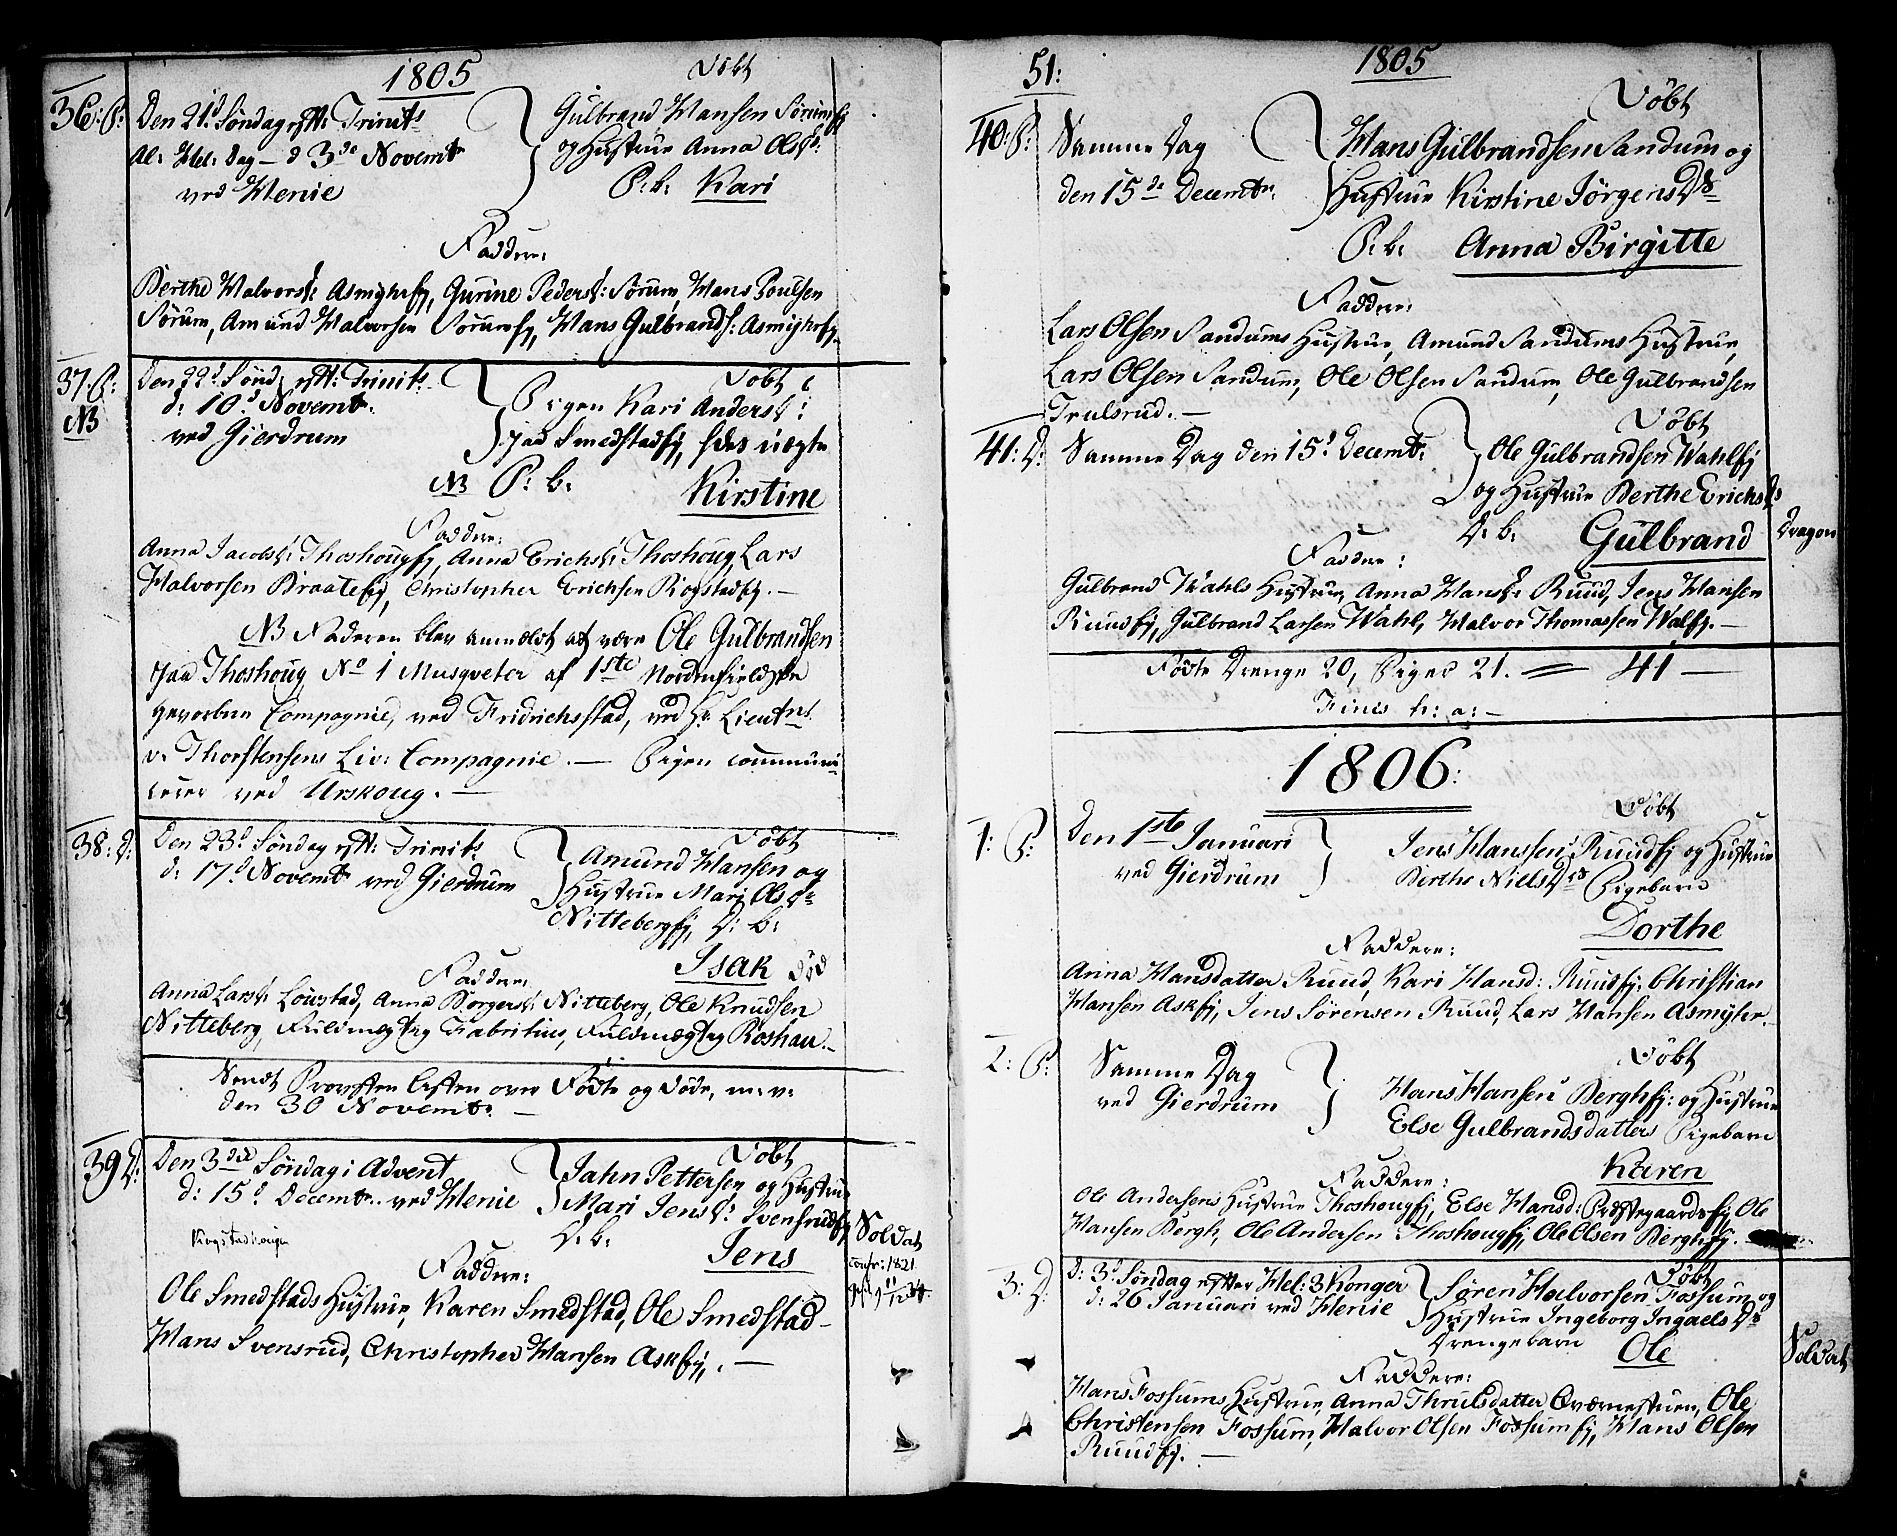 1805
Döbt
36: P: Den 21d Söndag eft: Trinits Gulbrand Hansen Sörumej
Al: Hel: Dag – d 3de Novembr og Hustrue Anna Olsd:
ved Heni​e P: b: Kari
Faddere:
Berthe Halvorsd: Asmyhrej, Gurine Pedersd: Sörum, Hans Poulsen
Sörum, Amund Halvorsen Sörumej, Hans Gulbrands: Asmyhrej.
37: P: Den 22d Sönd: eft: Trinits Döbt
NB d: 10d Novembr: Pigen Kari Andersd:
ved Gierdrum paa Smedstadej, hdes uægte
NB P: b: Kirstine
Faddere:
Anna Jacobsd: Thoshougej, Anna Erichsd: Thoshoug, Lars
Halvorsen Braateej, Christopher Erichsen Rogstadej. –
NB Faderen blev anmeldt at være Ole Gulbrandsen
paa Thoshoug No 1 Musqveter af 1ste Nordenfieldske
gevorbne Compagnie, ved Fridrichsstad, ved Hr Lieutnt
v. Thorstensens Liv: Compagnie. – Pigen communi-
cerer ved Urskoug. –
38: D: Den 23d Söndag eft: Trinits Döbt
d: 17d Novembr ved Gierdrum Amund Hansen og
Hustrue Mari Olsdr
Nittebergej, D: b:
Isak död
Faddere:
Anna Larsd: Löustad, Anna Börgersd: Nitteberg, Ole Knudsen
Nitteberg, Fuldmægtig Fabritius, Fuldmægtig Roshau. –
Sendt Provsten Listen over Födte og Döde, m: v:
den 30 Novembr. –
39 D: Den 3die Söndag i Advent Döbt
d: 15d Decembr. ved Henie Jahn Pettersen og Hustrue
Mari Jensd: Svensrudej
D: b: Soldat
Rogstadhougen Jens confr: 1821
Faddere:
Ole Smedstads Hustrue, Karen Smedstad, Ole Smedstad
Hans Svensrud, Christopher Hansen Askej. –
51:
1805
Döbt
40: P: Samme Dag Hans Gulbrandsen Sandum og
den 15de Decembr: Hustrue Kirstine Jörgens Dr
P: b: Anna Birgitte
Faddere:
Lars Olsen Sandums Hustrue, Amund Sandums Hustrue,
Lars Olsen Sandum, Ole Olsen Sandum, Ole Gulbrandsen
Trulsrud. –
Döbt
41: D: Samme Dag den 15d Decembr: Ole Gulbrandsen Wahlej
og Hustrue Berthe Erichsds
D: b: Gulbrand Dragon
Faddere:
Gulbrand Wahls Hustrue, Anna Hansd: Ruud, Jens Hansen
Ruudej, Gulbrand Larsen Wahl, Halvor Thomassen Walej. –
Födte Drenge 20, Piger 21. = 41 –
Finis h: a: –
1806:
Döbt
1: P: Den 1ste Januari Jens Hanssen Ruudej og Hustrue
ved Gierdrum Berthe NielsDrs Pigebarn
Dorthe
Faddere:
Anna Hansdatter Ruud, Kari Hansd: Ruudej, Christian
Hansen Askej, Jens Sörensen Ruud, Lars Hansen Asmyhr.
2: P: Samme Dag Döbt
ved Gierdrum Hans Hansen Berghej: og Hustrue
Else Gulbrandsdatters Pigebarn
Karen
Faddere:
Ole Andersens Hustrue Thoshougej, Else Hansd: Præstegaardsej, Ole
Hansen Bergh, Ole Andersen Thoshougej, Ole Olsen Berghej.
3: D: D: 3d Söndag efter Hel: 3 Konger Döbt
d: 26 Januari ved Henie Sören Halvorsen Fossum og
Hustrue Ingeborg Ingaels Dr
Drengebarn Ole Soldat
Faddere:
Hans Fossums Hustrue, Anna Thrulsdatter Qværnestuen, Ole
Christensen Fossum, Halvor Olsen Fossumej, Hans Olsen
Ruudej. –